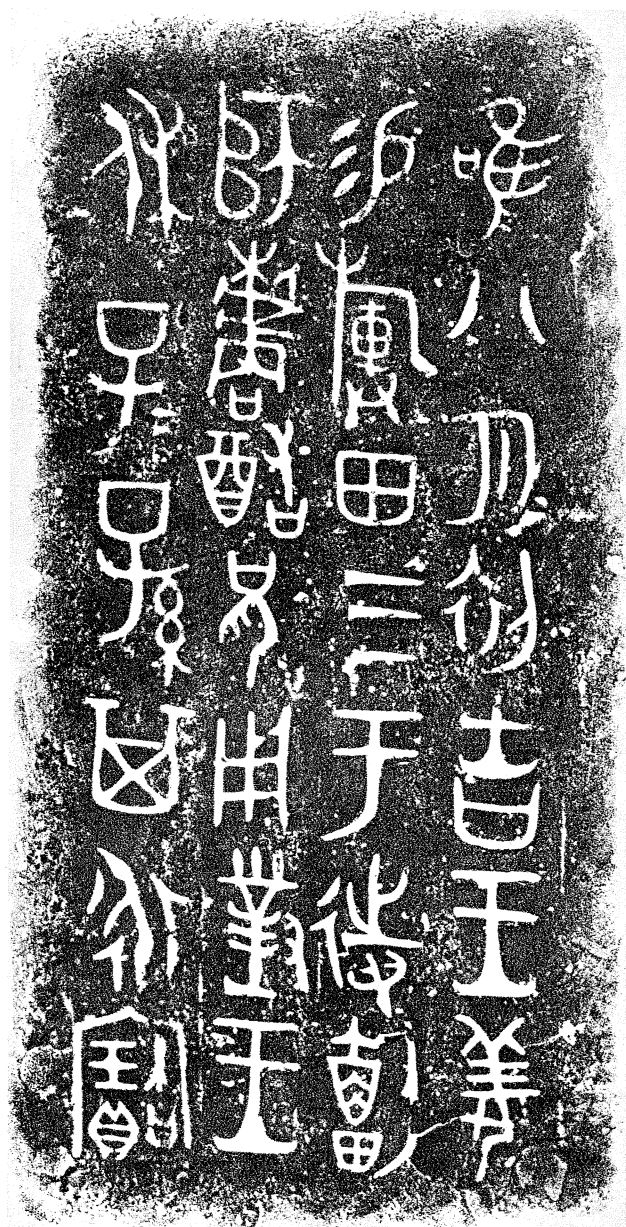 唯八月初吉王姜
易旟田三于待劇
師櫨酷兄用對王
休子子孫其永寶